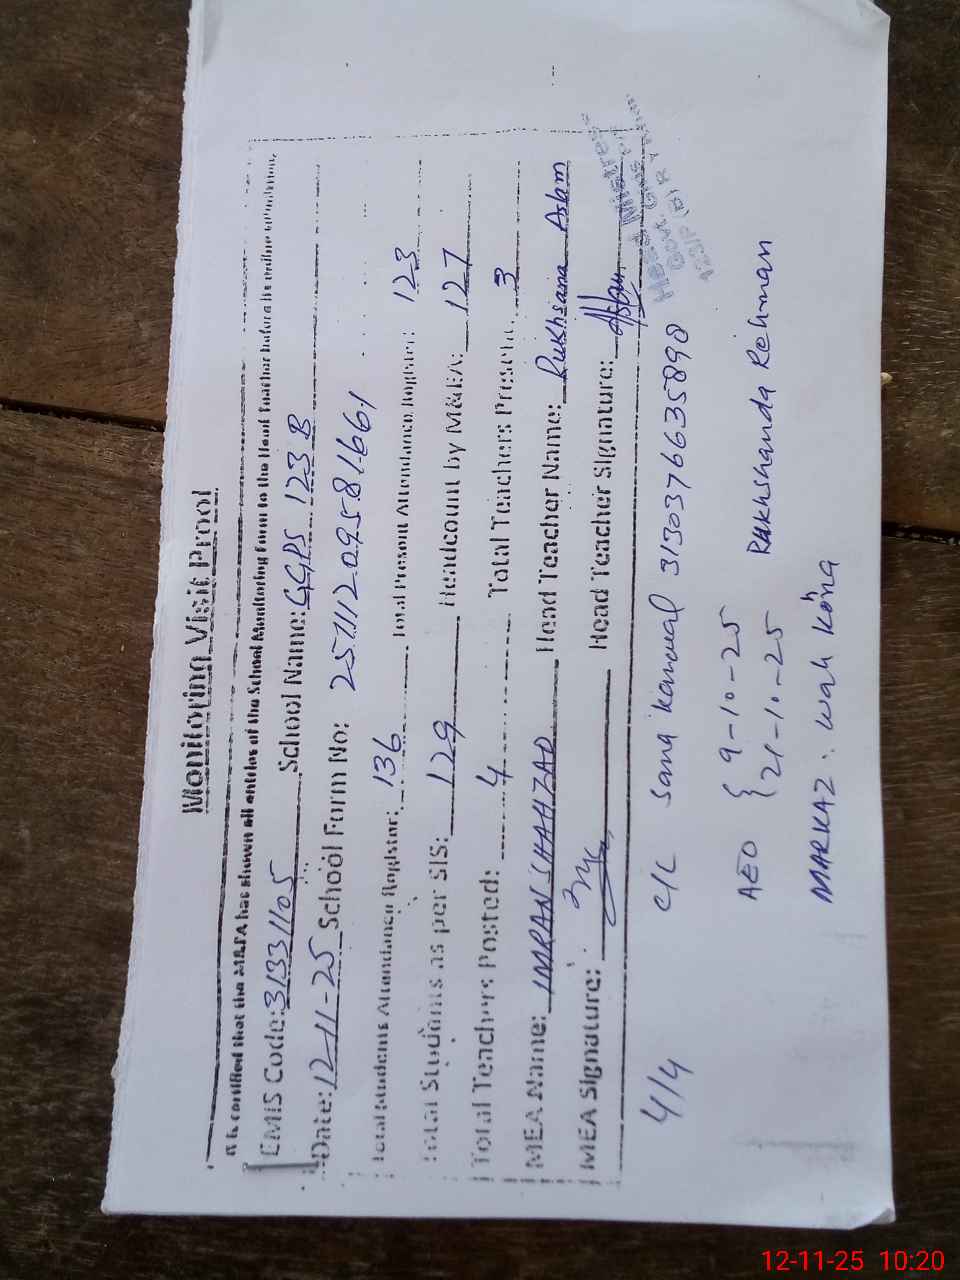 Monitoring Visit Proof
It is certified that the M&EA has shown all entries of the School Monitoring Form to the Head Teacher before its online submission.
EMIS Code: 31331105 School Name: GGPS 123 B
Date: 12-11-25 School Form No: 2511120958 1661
Total Students Attendance Register: 136 Total Present Attendance Register: 123
Total Students as per SIS: 129 Headcount by M&EA: 127
Total Teachers Posted: 4 Total Teachers Present: 3
MEA Name: IMRAN SHAHZAD Head Teacher Name: Rukhsana Aslam
MEA Signature: Head Teacher Signature:
Head Mistress
Govt.
123/P (B) R Y Khan
4/4 C/C Sana Kanwal 3130376635890
AEO { 9-10-25 Rakhshanda Rehman
21-10-25
MARKAZ. Wah Kona
12-11-25 10:20